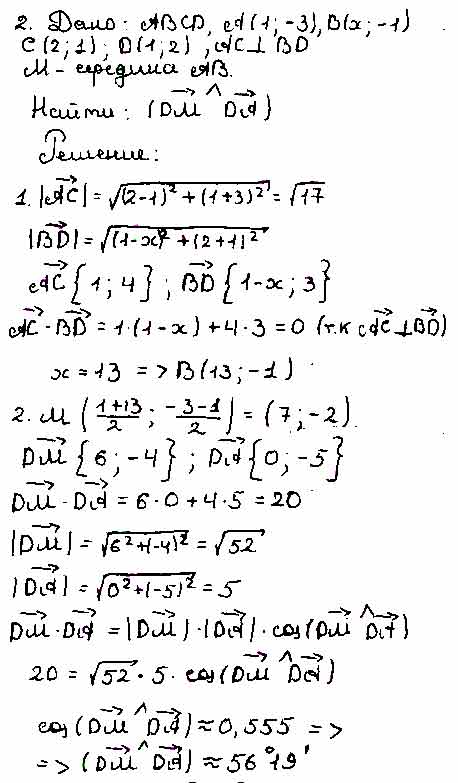 2. Дано: ABCD, A(1; -3), B(x; -1)
C(2; 1); D(1; 2), AC⊥BD
M - середина AB.
Найти: (DM^DA)
Решение:
1. |AC| = √((2-1)² + (1+3)²) = √17
|BD| = √((1-x)² + (2+1)²)
AC{1; 4}; BD{1-x; 3}
AC·BD = 1·(1-x) + 4·3 = 0 (т.к AC⊥BD)
x = 13 => B(13; -1)
2. M((1+13)/2; (-3-1)/2) = (7; -2).
DM{6; -4}; DA{0; -5}
DM·DA = 6·0 + 4·5 = 20
|DM| = √(6²+(-4)²) = √52
|DA| = √(0²+(-5)²) = 5
DM·DA = |DM|·|DA|·cos(DM^DA)
20 = √52·5·cos(DM^DA)
cos(DM^DA) ≈ 0,555 =>
=> (DM^DA) ≈ 56°19'